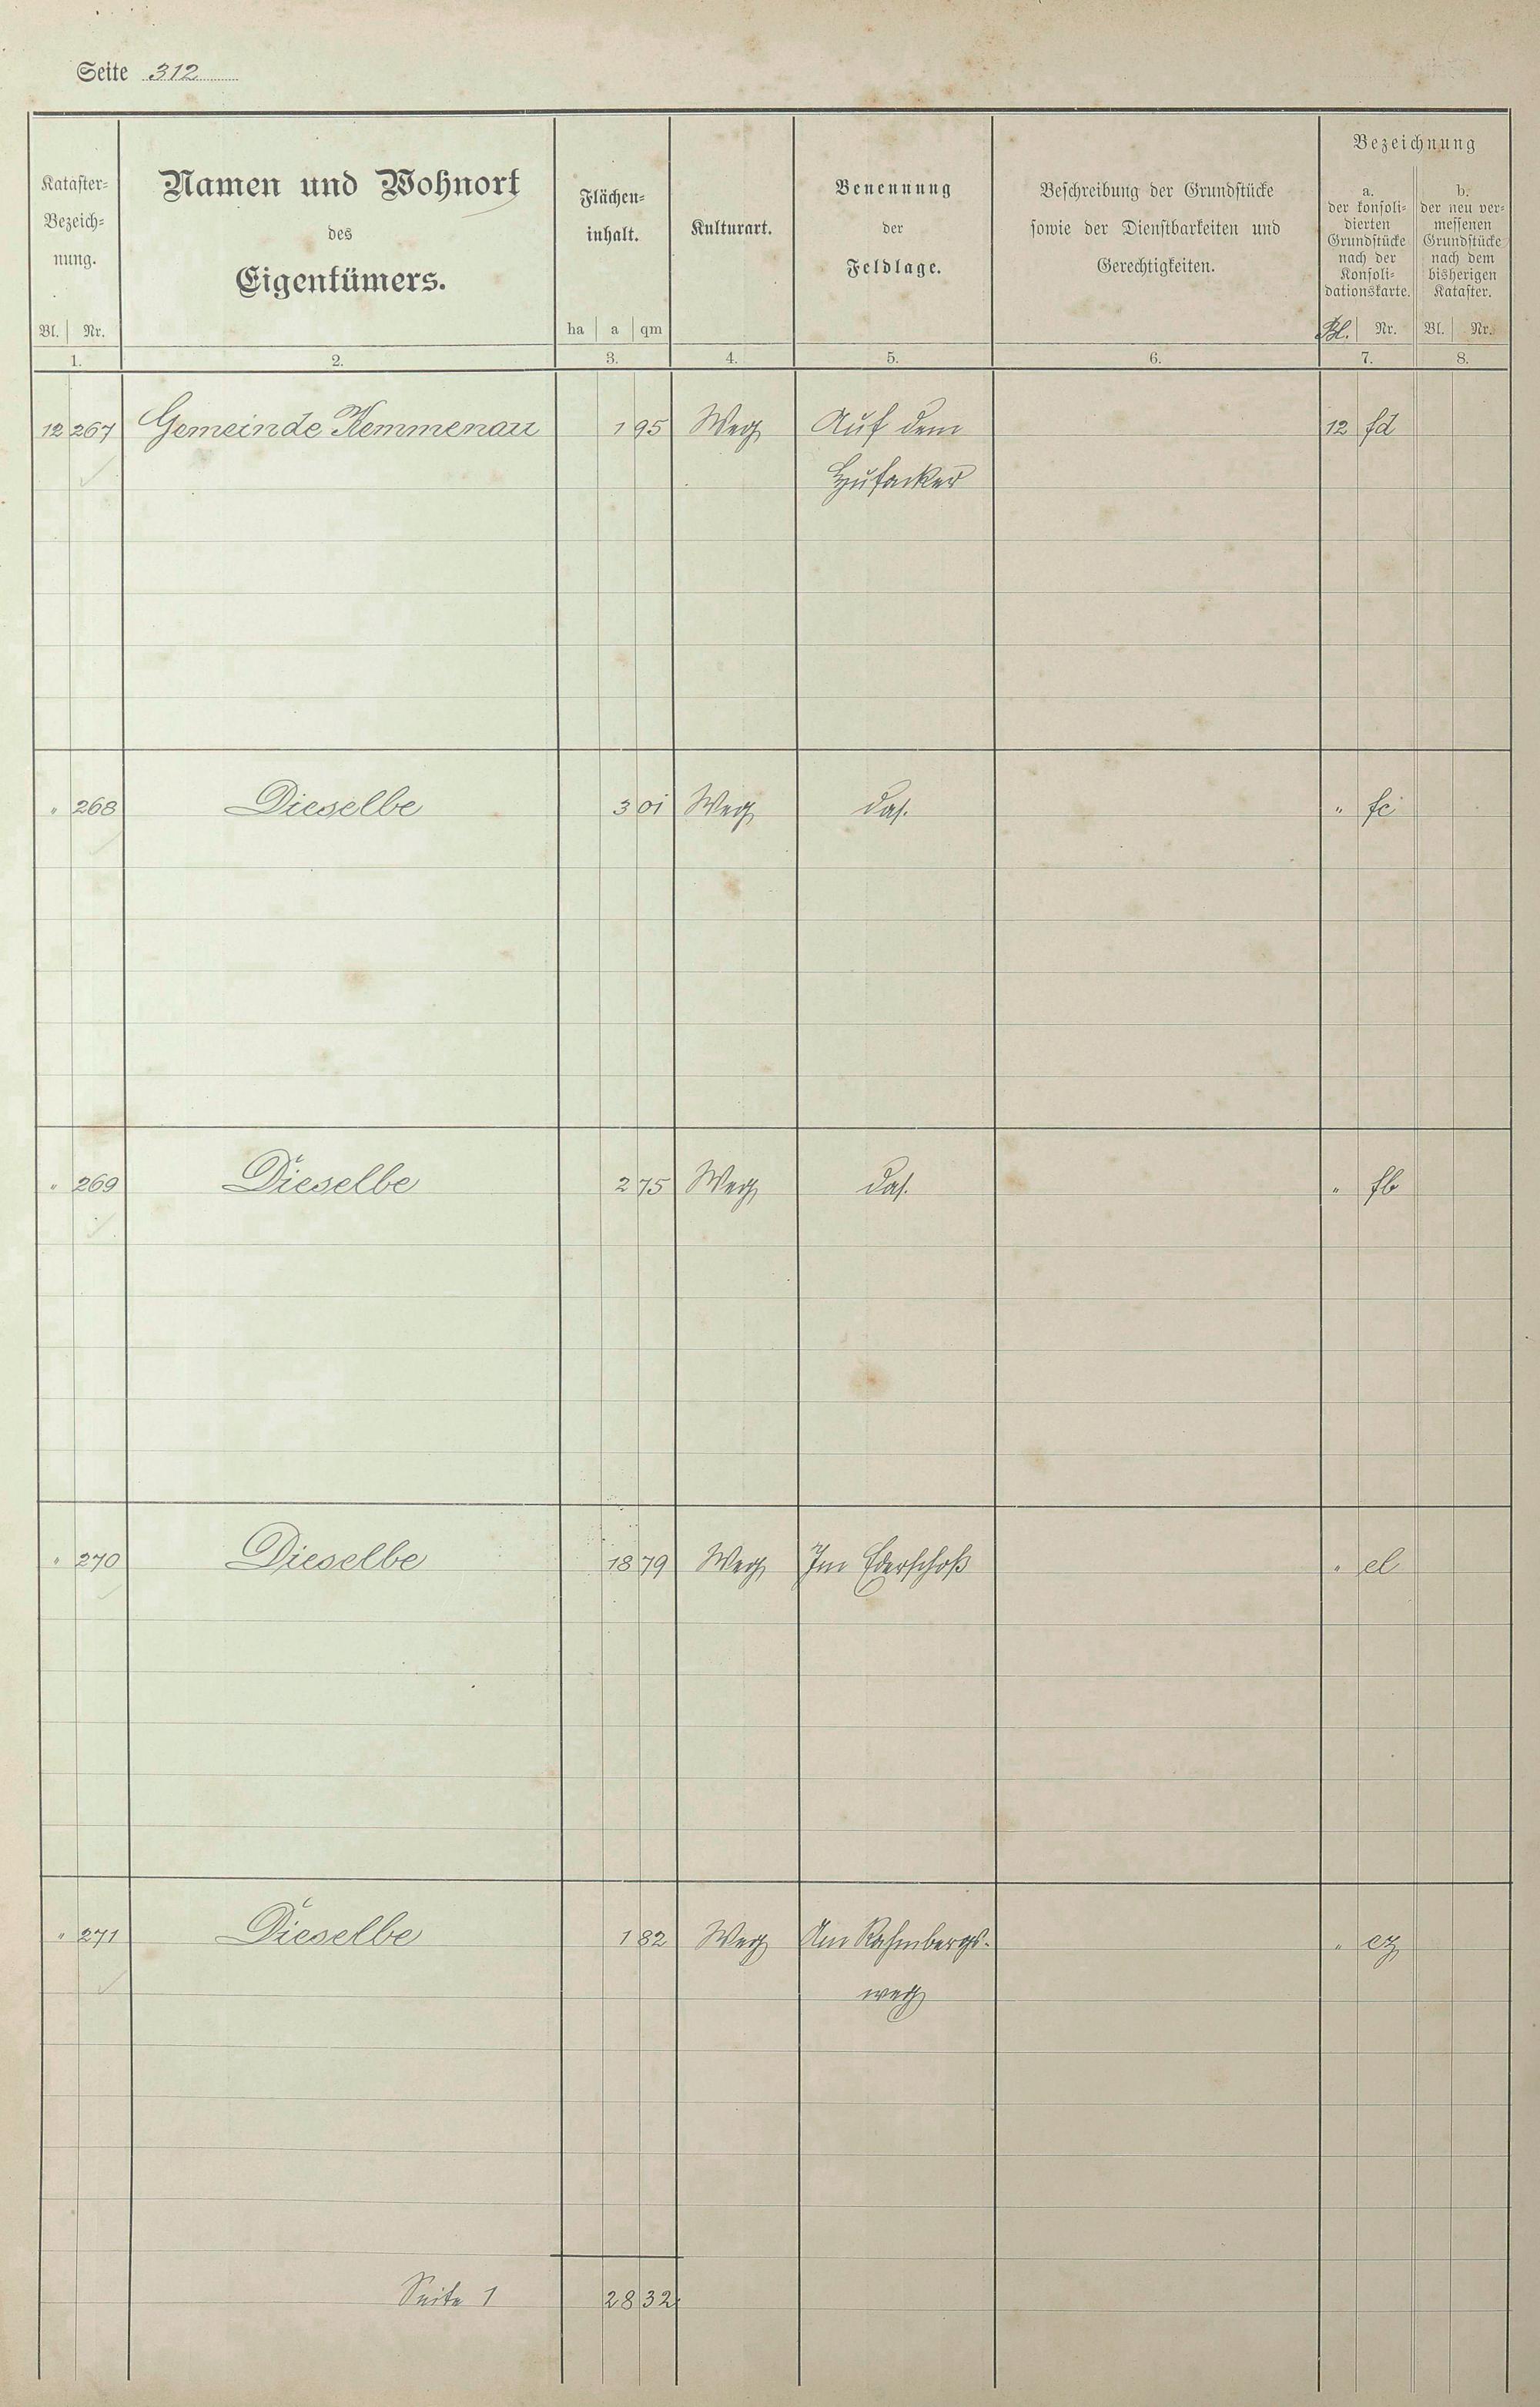 Seite 312
Kataster-
Bezeich-
nung.
Bl. Nr.
1.
Namen und Wohnort
des
Eigentümers.
2.
Flächen-
inhalt.
ha a qm
3.
Kulturart.
4.
Benennung
der
Feldlage.
5.
Beschreibung der Grundstücke
sowie der Dienstbarkeiten und
Gerechtigkeiten.
6.
Bezeichnung
a.
der konsoli-
dierten
Grundstücke
nach der
Konsoli-
dationskarte.
Bl. Nr.
7.
b.
der neu ver-
messenen
Grundstücke
nach dem
bisherigen
Kataster.
Bl. Nr.
8.
12 267 Gemeinde Kemmenau 1 95 Weg Auf dem 12 fd
Hufacker
" 268 Dieselbe 3 01 Weg das. " fc
" 269 Dieselbe 2 75 Weg das. " fb
" 270 Dieselbe 18 79 Weg Im Ederschoß " el
" 271 Dieselbe 1 82 Weg Am Rahmbergs-
weg
Seite 1 28 32